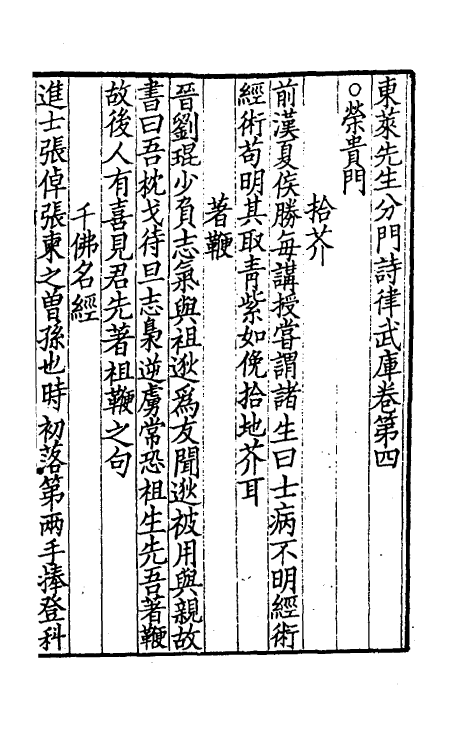 東萊先生分門詩律武庫卷第四
○榮貴門
拾芥
前漢夏侯勝每講授嘗謂諸生曰士病不明經術
經術苟明其取青紫如俛拾地芥耳
著鞭
晉劉琨少負志氣與祖逖爲友聞逖被用與親故
書曰吾枕戈待旦志梟逆虜常恐祖生先吾著鞭
故後人有喜見君先著祖鞭之句
千佛名經
進士張倬張柬之曾孫也時初落第兩手捧登科